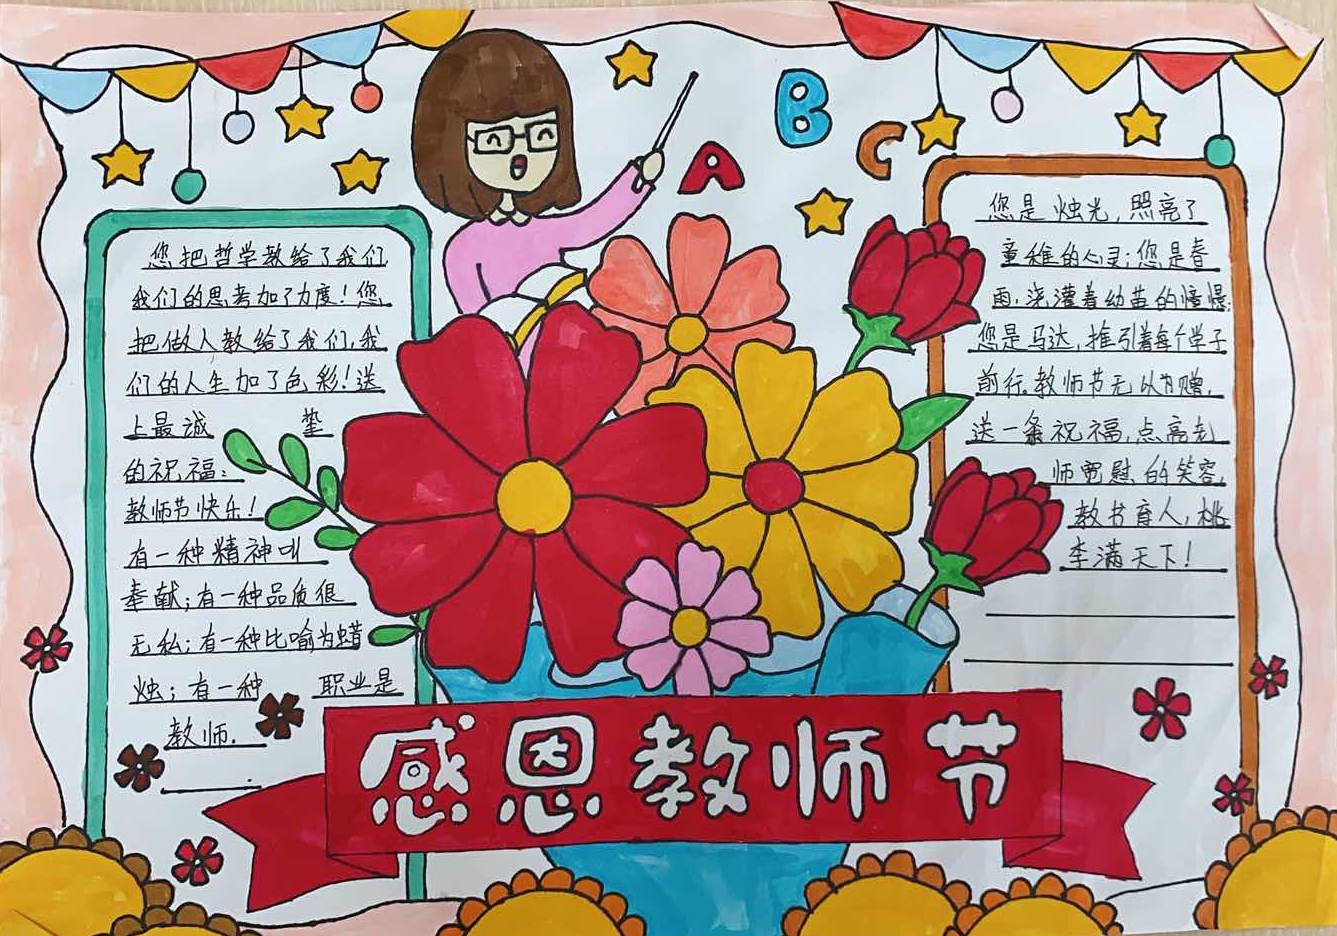 A B C
您把哲学教给了我们
我们的思考加了力度！您
把做人教给了我们,我
们的人生加了色彩！送
上最诚 挚
的祝福：
教师节快乐！
有一种精神叫
奉献；有一种品质很
无私；有一种比喻为蜡
烛；有一种 职业是
教师.
您是烛光,照亮了
童稚的心灵；您是春
雨,浇灌着幼苗的憧憬；
您是马达,推引着每个学子
前行.教师节无以为赠,
送一条祝福,点亮老
师宽慰的笑容,
教书育人,桃
李满天下！
感恩教师节